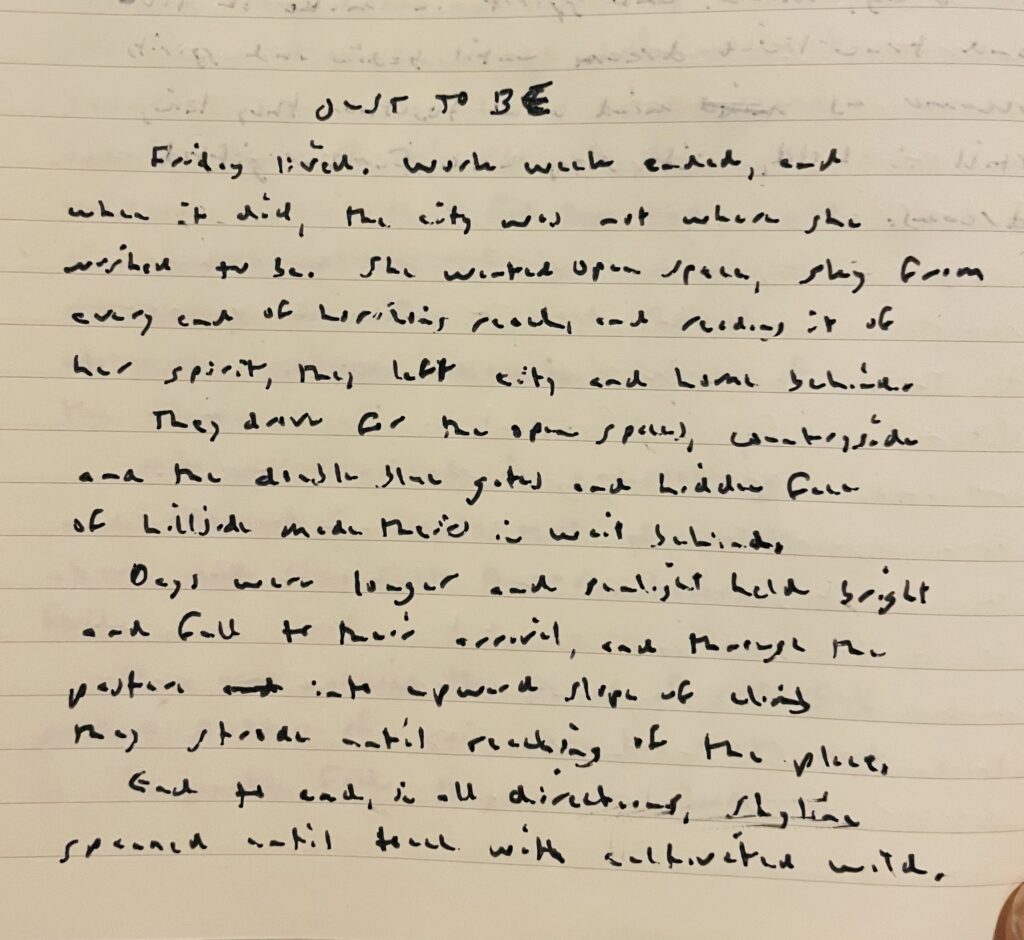 JUST TO BE
Friday lived. Work week ended, and
when it did, the city was not where she
wished to be. She wanted open space, sky from
every end of horizons reach, and reading it of
her spirit, they left city and home behind.
They drove for the open spaces, countryside
and the double blue gates and hidden face
of hillside made theirs in wait behind.
Days were longer and sunlight held bright
and full to their arrival, and through the
pasture into upward slope of climb
they strode until reaching of the place.
End to end, in all directions, skyline
spanned until touch with cultivated wild.